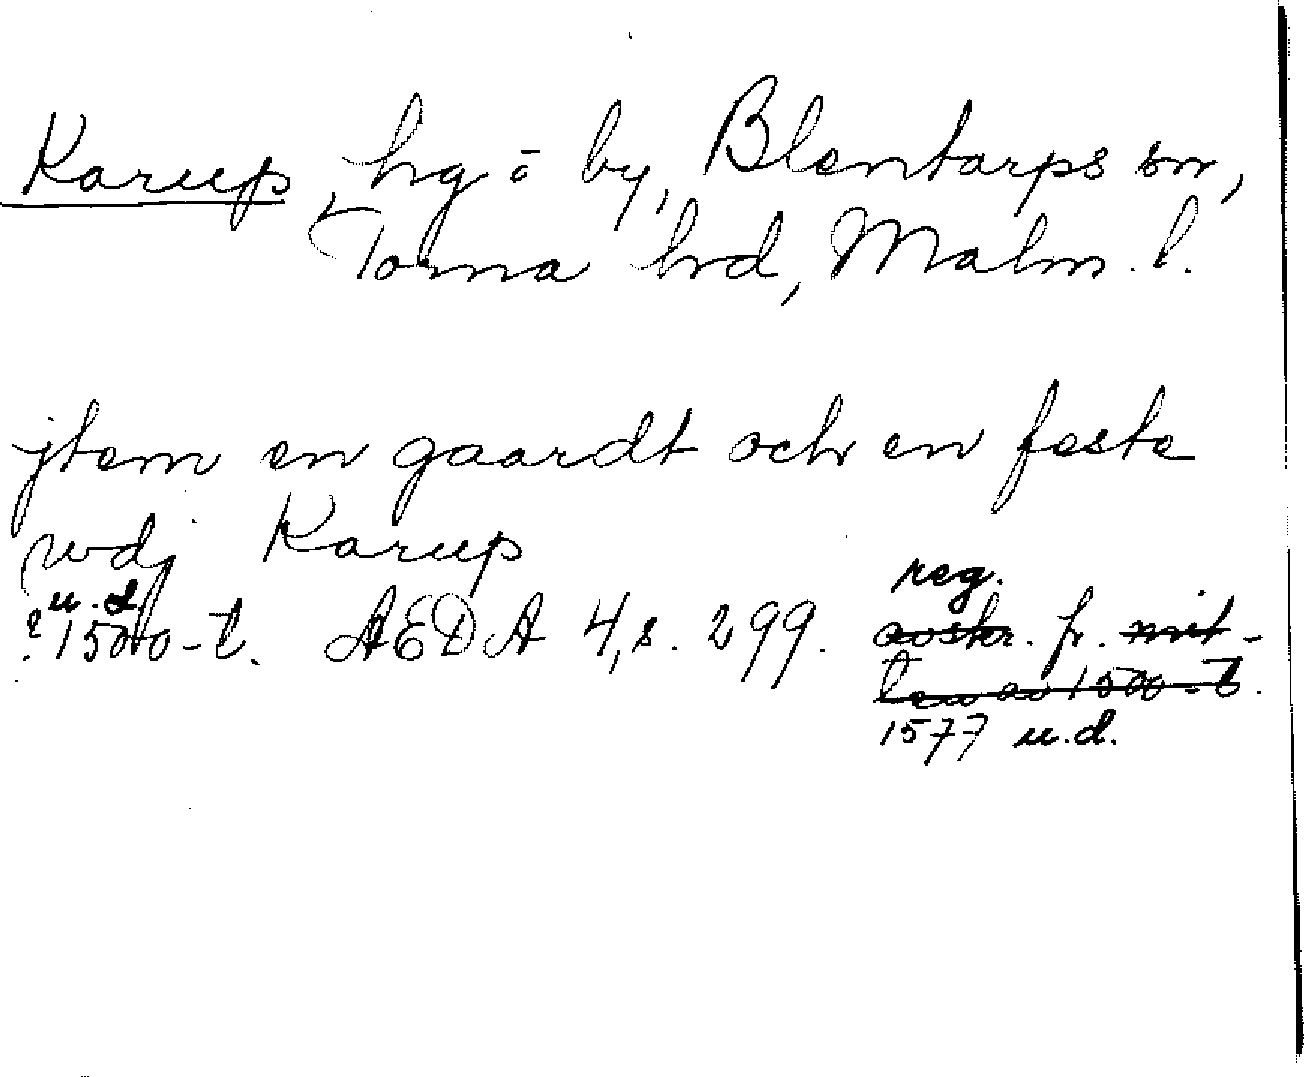 Karup, hg o by, Blentarps sn,
Torna hd, Malm. l.
jtem en gaardt och en feste
wdj Karup
u. d.
? 1500-t. AEDA 4, s. 299. reg.
avskr. fr. mit-
ten av 1500-t.
1577 u.d.